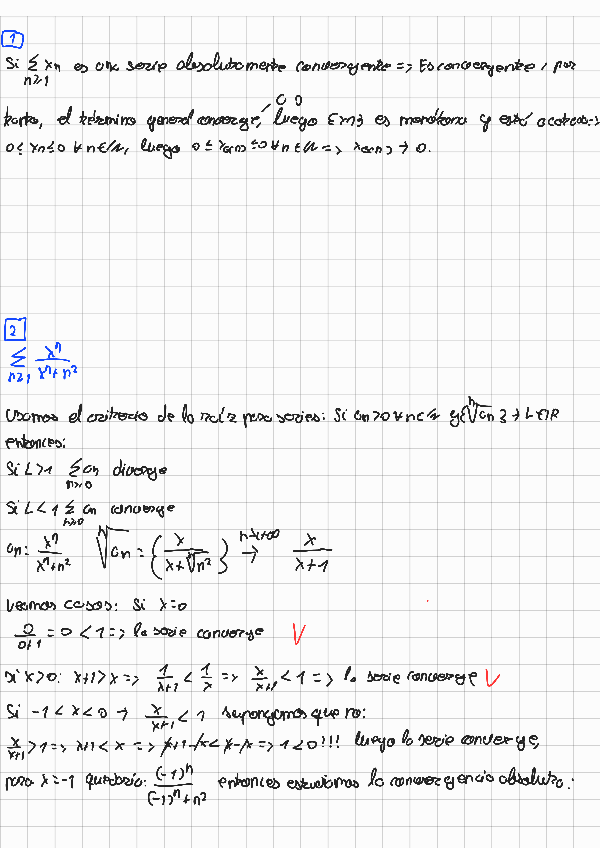 1
Si Σ xn es una serie absolutamente convergente => Es convergente, por
n≥1
tanto, el término general converge a 0, luego {xn} es monótona y está acotada =>
0 ≤ xn ≤ 0 ∀n∈ℕ, luego 0 ≤ xσ(n) ≤ 0 ∀n∈ℕ => xσ(n) → 0.
2
Σ xⁿ/(xⁿ+n²)
n≥1
Usamos el criterio de la raíz para series: Si an>0 ∀n∈ℕ y {ⁿ√an} → L∈ℝ
entonces:
Si L>1 Σ an diverge
n≥0
Si L<1 Σ an converge
n≥0
an: xⁿ/(xⁿ+n²) ⁿ√an = {x/(x+ⁿ√n²)} n→+∞ → x/(x+1)
Veamos casos: Si x=0
0/(0+1) = 0 < 1 => la serie converge V
Si x>0: x+1>x => 1/(x+1) < 1/x => x/(x+1) < 1 => la serie converge V
Si -1<x<0 → x/(x+1) < 1 supongamos que no:
x/(x+1) > 1 => x+1 < x => x+1-x < x-x => 1<0!!! luego la serie converge,
para x=-1 quedaría: (-1)ⁿ/((-1)ⁿ+n²) entonces estudiamos la convergencia absoluta: